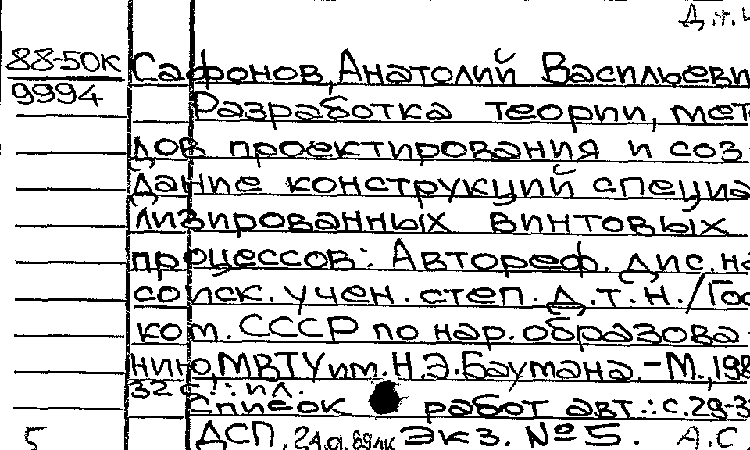 Д.т.
88-50к
9994
Сафонов, Анатолий Васильеви
Разработка теории, мет
дов проектирования и соз-
дание конструкций специа
лизированных винтовых
процессов: Автореф. дис. на
соиск. учен. степ. д.т.н./Гос
ком. СССР по нар. образова-
нию, МВТУ им. Н.Э.Баумана.-М.,198
32 с.: ил.
Список работ авт.: с.29-3
5 ДСП, 24.01.89 Экз. №5. А.С.